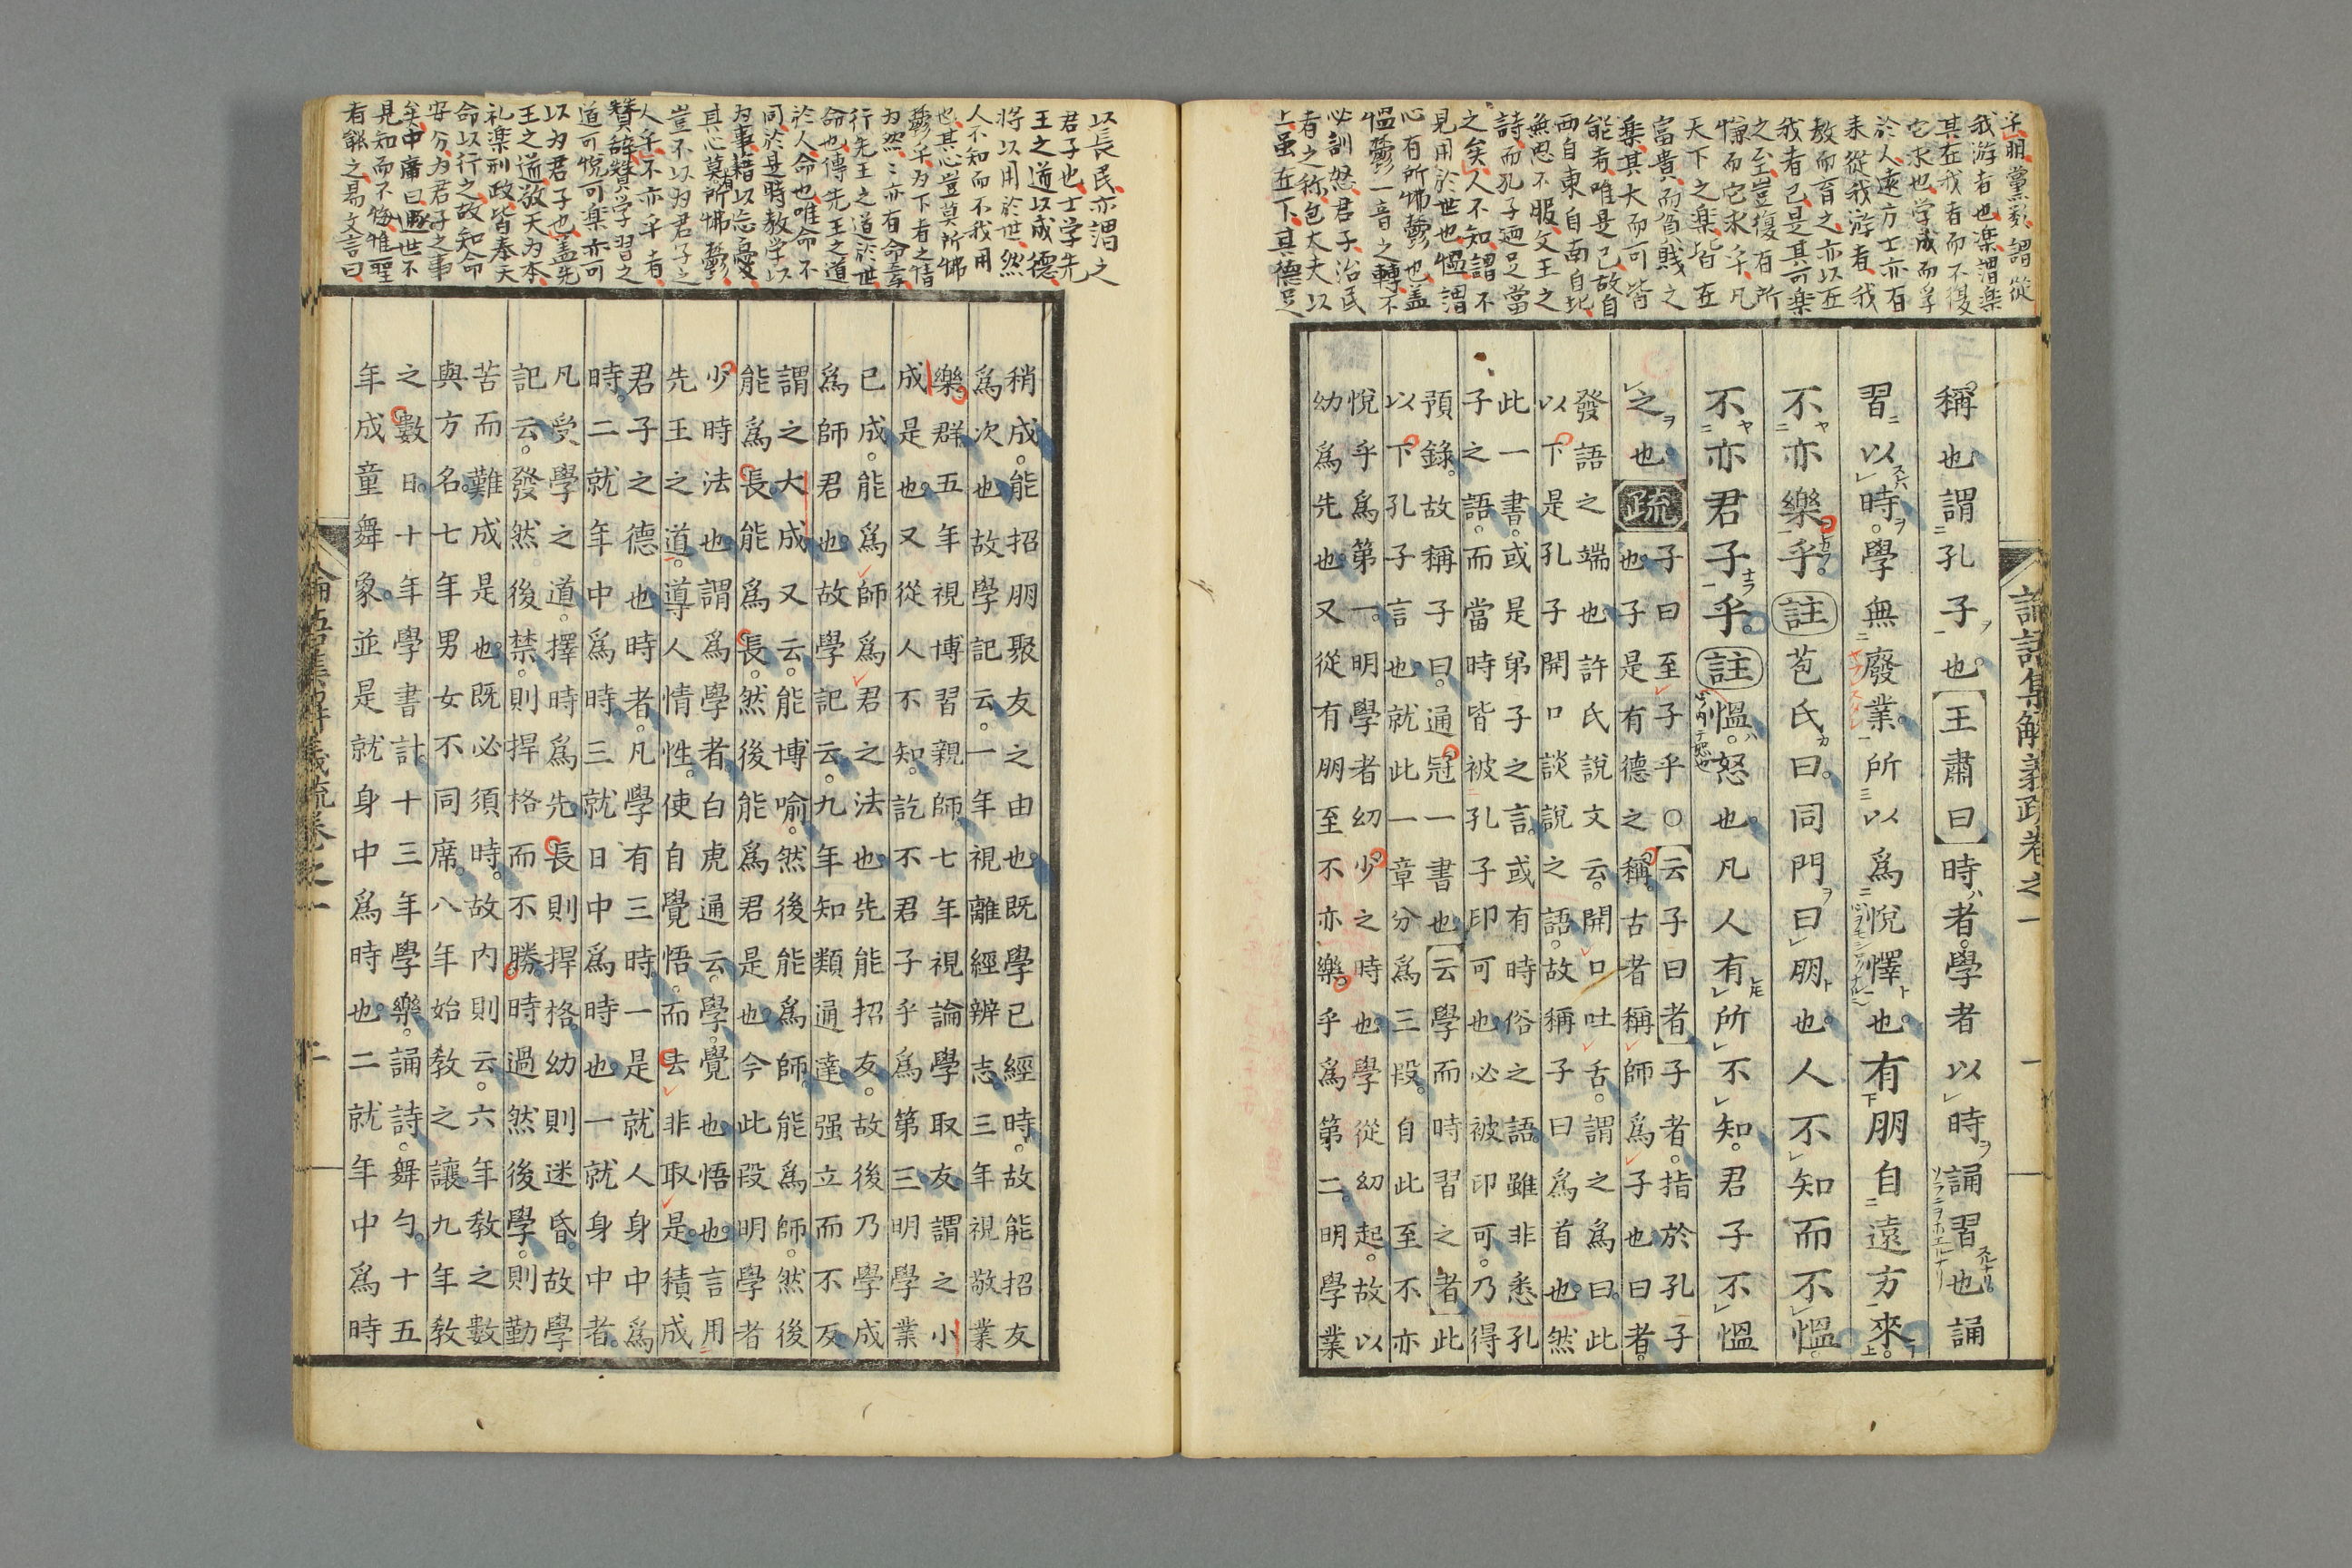 朋黨類謂從
我游者也楽謂楽
其在我者而不復
它求也学成而孚
於人遠方士亦有
来從我游者我
教而育之亦以在
我者已是其可楽
之至豈復有所
慊而它求乎凡
天下之楽皆在
富貴而貧賎之
樂其大而可皆
能者唯是已故自
西自東自南自北
無思不服文王之
詩而孔子廼足當
之矣人不知謂不
見用於世也慍謂
心有所怫鬱也盖
慍鬱一音之轉不
必訓怒君子治民
者之称包大夫以
上虽在下其德足
論語集解義疏卷之一
一
稱也謂孔子也王肅曰時者學者以時誦習也誦
習以時學無廢業所以爲悅懌也有朋自遠方來
不亦樂乎註苞氏曰同門曰朋也人不知而不慍
不亦君子乎註慍怒也凡人有所不知君子不慍
之也疏子曰至子乎○云子曰者子者指於孔子
也子是有德之稱古者稱師爲子也曰者
發語之端也許氏說文云開口吐舌謂之爲曰此
以下是孔子開口談說之語故稱子曰爲首也然
此一書或是弟子之言或有時俗之語雖非悉孔
子之語而當時皆被孔子印可也必被印可乃得
預錄故稱子曰通冠一書也云學而時習之者此
以下孔子言也就此一章分爲三段自此至不亦
悅乎爲第一明學者幼少之時也學從幼起故以
幼爲先也又從有朋至不亦樂乎爲第二明學業
以長民亦謂之
君子也士学先
王之道以成德
将以用於世然
人不知而不我用
也其心豈莫所怫
鬱乎为下者之情
为然〻亦有命焉
行先王之道於世
命也傳先王之道
於人命也唯命不
同於是時教学以
为事藉以忘憂
其心莫所怫鬱
豈不以为君子之
人乎不亦乎者
賛辞賛学習之
道可悅可楽亦可
以为君子也盖先
王之道敬天为本
礼楽刑政皆奉天
命以行之故知命
安分为君子之事
矣中庸曰遯世不
見知而不悔惟聖
者能之易文言曰
稍成能招朋聚友之由也既學已經時故能招友
爲次也故學記云一年視離經辨志三年視敬業
樂群五年視博習親師七年視論學取友謂之小
成是也又從人不知訖不君子乎爲第三明學業
已成能爲師爲君之法也先能招友故後乃學成
爲師君也故學記云九年知類通達强立而不反
謂之大成又云能博喻然後能爲師能爲師然後
能爲長能爲長然後能爲君是也今此段明學者
少時法也謂爲學者白虎通云學覺也悟也言用
先王之道導人情性使自覺悟而去非取是積成
君子之德也時者凡學有三時一是就人身中爲
時二就年中爲時三就日中爲時也一就身中者
凡受學之道擇時爲先長則捍格幼則迷昏故學
記云發然後禁則捍格而不勝時過然後學則勤
苦而難成是也既必須時故内則云六年教之數
與方名七年男女不同席八年始教之讓九年教
之數日十年學書計十三年學樂誦詩舞勺十五
年成童舞象並是就身中爲時也二就年中爲時
論語集解義疏卷之一
二